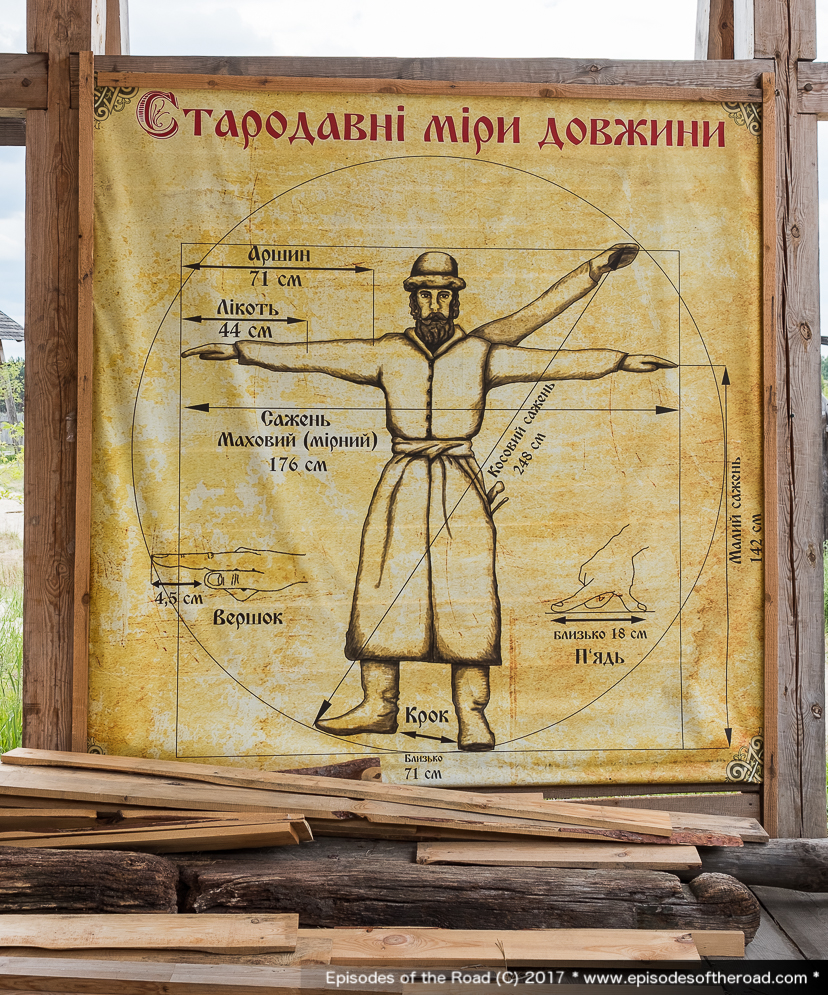 Стародавні міри довжини
Аршин
71 см
Лікоть
44 см
Сажень
Маховий (мірний)
176 см
Косовий сажень
248 см
Малий сажень
142 см
4,5 см
Вершок
близько 18 см
П'ядь
Крок
Близько
71 см
Episodes of the Road (C) 2017 * www.episodesoftheroad.com *